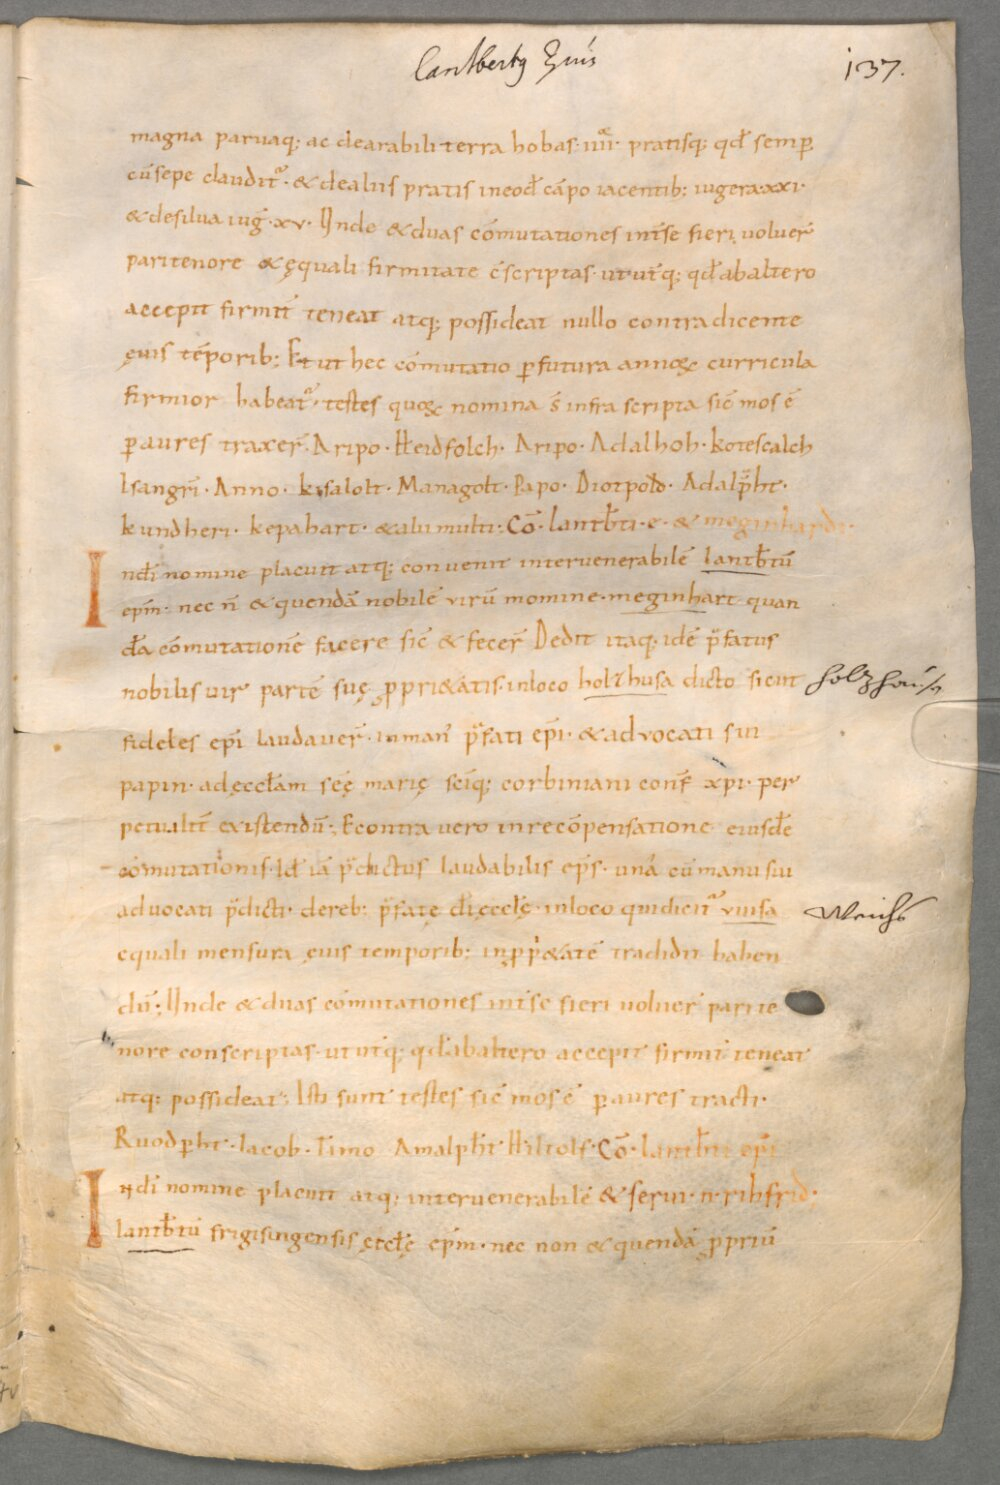 Lantbertg Epus
137.
magna paruaq; ac dearabili terra hobas· IIII· pratisq; qđ semp
cū sepe claudit̃· & dealiis pratis ineod cāpo iacentib; iugera·xxi·
& desilua iug̃·xv· Unde & duas cōmutationes int̃se fieri uoluer̃
paritenore & ęquali firmitate c̄scriptas· ututq; qđ abaltero
accepit firmit̃ teneat atq; possideat nullo contradicente
ęuis tēporib; Et ut hec cōmutatio p futura annoꝝ curricula
firmior habeat̃· testes quoꝝ nomina s̄ infra scripta sic̄ mos ē
p aures traxer̃· Aripo· Heidfolch· Aripo· Adalhoh· Kotescalch
Isangrī· Anno· kisalolt· Managolt· Papo· Diotpold· Adalp̄ht·
kundheri· kepahart· & alii multi; Cō· lantb̄ti· e· & meginhardi·
Indī nomine placuit atq; conuenit interuenerabilē lantb̄tū
epm̄· nec n̄ & quendā nobilē uirū momine· meginhart quan
dā cōmutationē facere sic̄ & fecer̃ Dedit itaq; idē p̄fatus
nobilis uir partē suę ꝓpri&atis· inloco holzhusa dicto sicut
holzhausn
fideles epī laudauer̃· inman̄ p̄fati epī· & aduocati sui
papin· ad ęcclam scę marię scīq; corbiniani conf̄ xpi· per
petualit̃ existendū; Econtra uero inrecōpensatione eiusdē
cōmutationis· Id iā p̄dictus laudabilis eps̄· unā cū manu sui
aduocati p̄dicti· dereb; p̄fatę dī ęcclę· inloco quidicit̃ uuisa
Weichs
equali mensura ęuis temporib; inꝓp̄&atē tradidit haben
dū; Unde & duas cōmutationes int̃se fieri uoluer̃ parite
nore conscriptas· ututq; qđ abaltero accepit firmit̃ teneat
atq; possideat; Isti sunt testes sic̄ mos ē p aures tracti·
Ruodp̄ht· Iacob· Timo Amalp̄ht Hiltolf· Cō· lantb̄ti epī
Indī nomine placuit atq; interuenerabilē & serui· n· rihfrid;
lantb̄tū frigisingensis ęcclę epm̄· nec non & quendā ꝓpriū